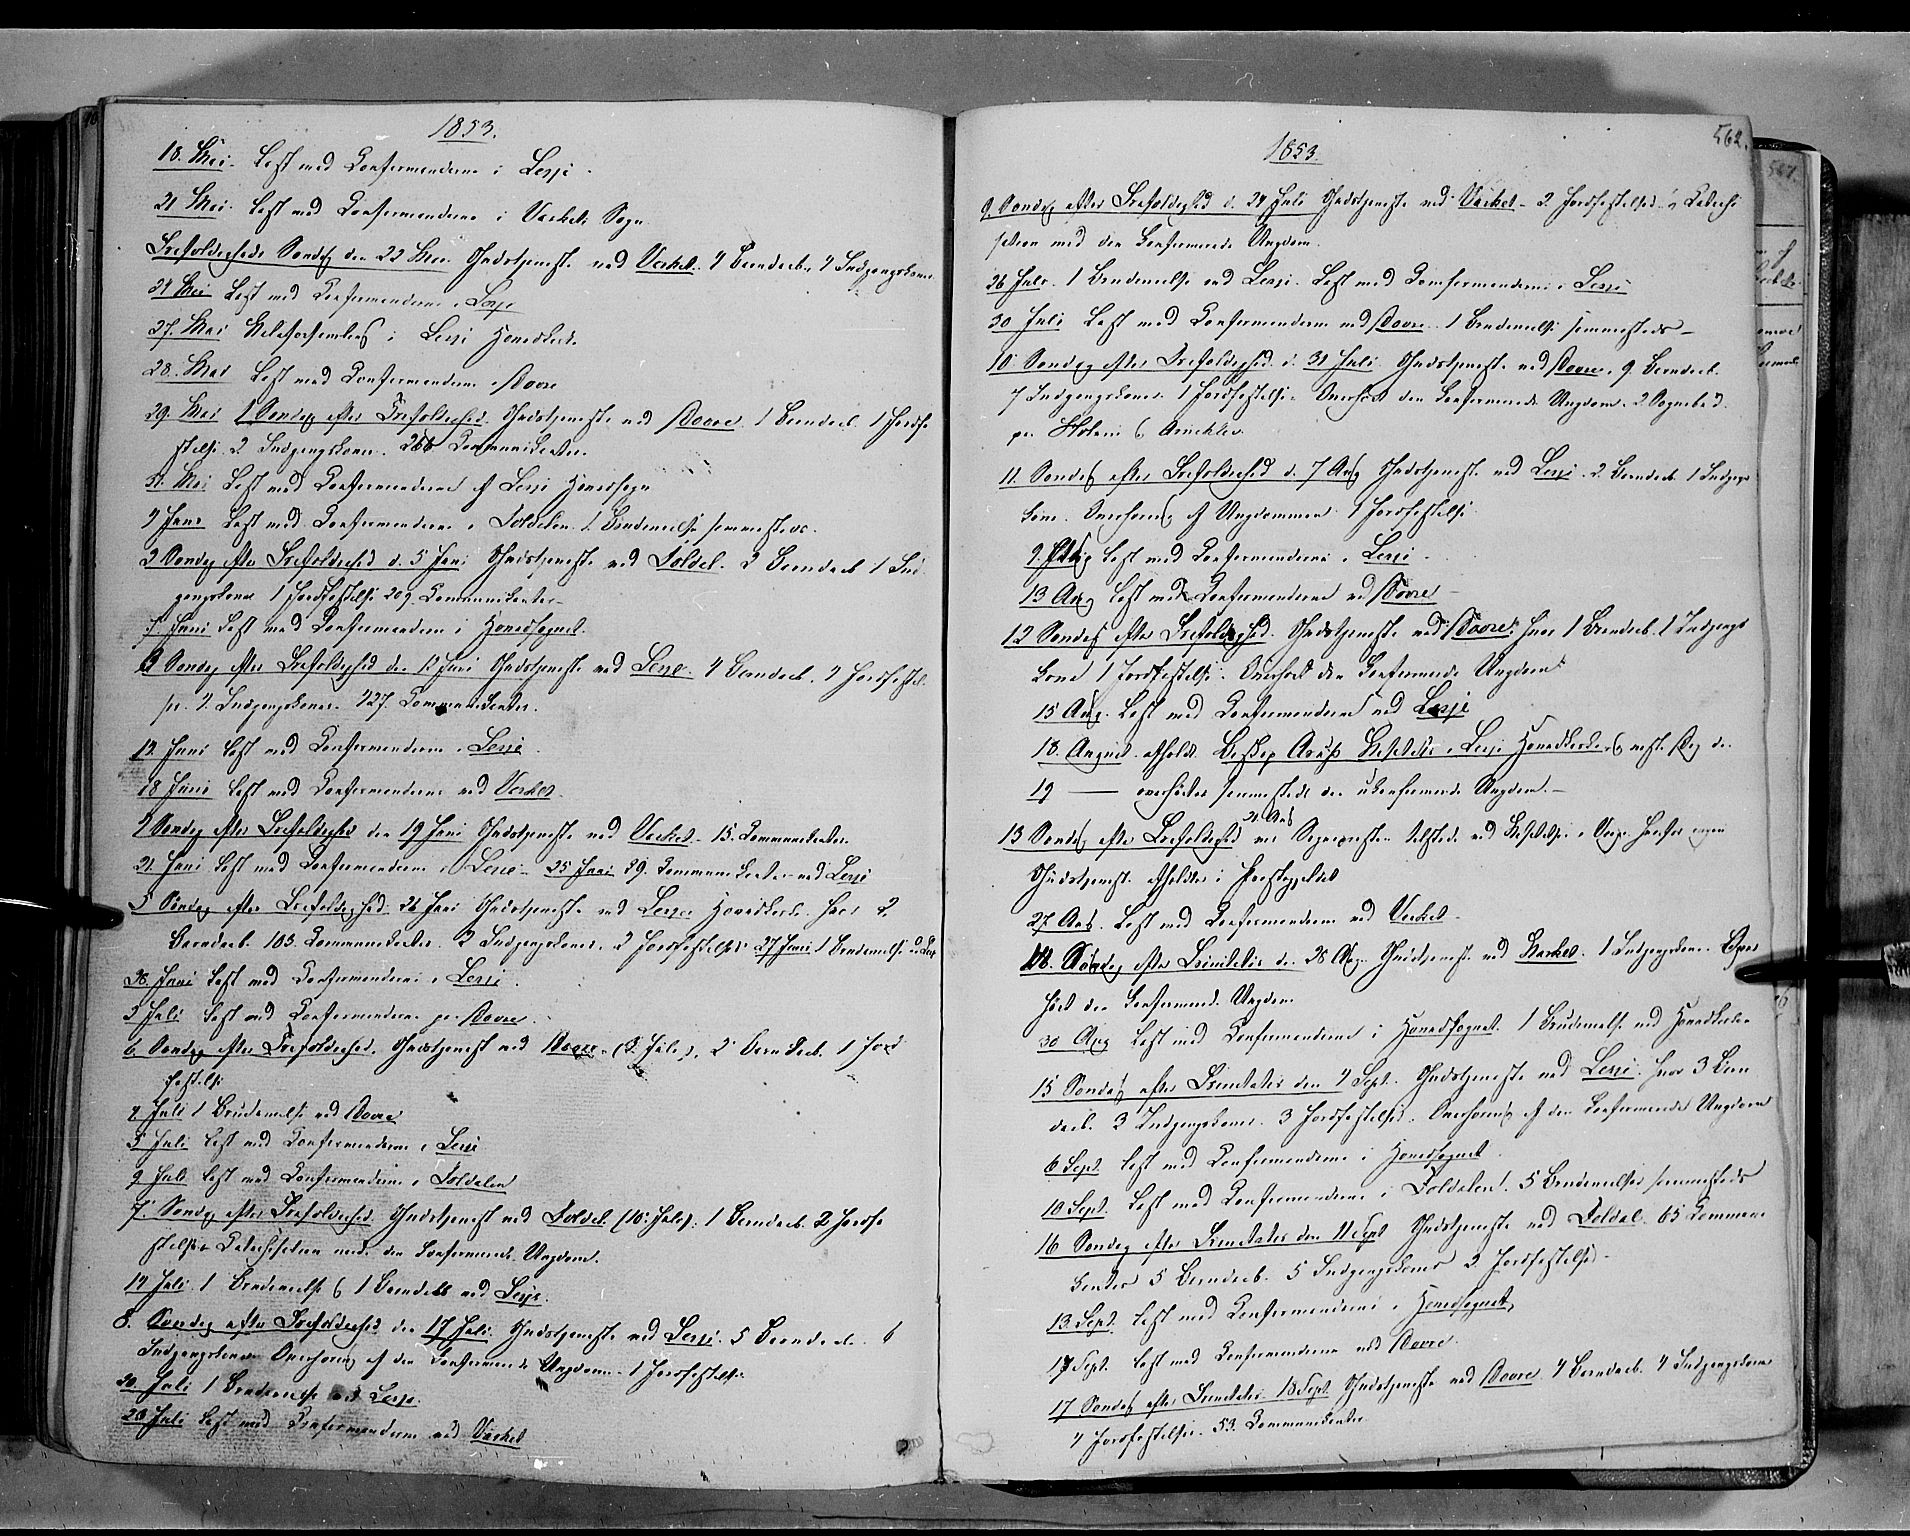 1853.
18. Mai. Læst med Konfirmanderne i Lesje.
21 Mai. Læst med Konfirmanderne i Værkets Sogn
Trefoldigheds Søndag den 22 Mai. Gudstjeneste ved Værket. 4 Barnedaab, 4 Indgangskoner
24 Mai Læst med Konfirmanderne i Lesje
27. Mai i Lesje Hovedkirke.
28. Mai Læst med Konfirmanderne i Dovre
29. Mai 1 Søndag efter Trefoldighed. Gudstjeneste ved Dovre. 1 Barnedaab. 1 Jordfæ
stelse. 2 Indgangskoner. Communikanter.
31. Mai Læst med Konfirmanderne af Lesje Hovedsogn
4 Juni Læst med Konfirmanderne i Foldalen. 1 Brudevielse sammesteds.
2 Søndag efter Trefoldighed d. 5 Juni Gudstjeneste ved Foldal. 3 Barnedaab 1 Ind
gangskone 1 Jordfæstelse 209. Communikanter
7. Juni Læst med Konfirmanderne i Hovedsognet.
3 Søndag efter Trefoldighed den 12 Juni Gudstjeneste ved Lesje. 4 Barnedaab. 4 Jordfæstel
ser. 4. Indgangskoner. 127. Communikanter.
Juni Læst med Konfirmanderne i Lesje.
18 Juni Læst med Konfirmanderne ved Værket.
4 Søndag efter Trefoldighed den 19 Juni Gudstjeneste ved Værket. 15. Communikanter
21. Juni Læst med Konfirmanderne i Lesje. 25 Juni 29. Communikanter ved Lesje
5 Søndag efter Trefoldighed. 26 Juni Gudstjeneste ved Lesje Hovedkirke. Hvor 2.
Barnedaab. 103. Communikanter. 2 Indgangskoner. 2 Jordfæstelser 27 Juni 1 Brudevielse
Juni Læst med Konfirmanderne i Lesje.
Juli Læst med Konfirmanderne paa Dovre.
6 Søndag efter Trefoldighed. Gudstjeneste ved Dovre. (3 Juli). 2 Barnedaab. 1 Jord
fæstelse
4 Juli 1 Brudevielse ved Dovre
5 Juli Læst med Konfirmanderne i Lesje
9 Juli Læst med Konfirmanderne i Foldalen
7. Søndag efter Trefoldighed. Gudstjeneste ved Foldal (10. Juli). 1 Barnedaab. 2 Jordfæ
stelser. Catechisation med den konfirmerede Ungdom.
14 Juli. 1 Brudevielse & 1 Barnedaab ved Lesje.
8. Søndag efter Trefoldighed den 17 Juli. Gudstjeneste ved Lesje. 5 Barnedaab. 6
Indgangskoner Overhøring af den konfirmerede Ungdom. 1 Jordfæstelse.
20. Juli 1 Brudevielse ved Lesje.
Juli Læst med Konfirmanderne ved Værket
1853.
562.
9. Søndag efter Trefoldighed d. 24 Juli Gudstjeneste ved Værket. 2 Jordfæstelser. Catechi
sation med den konfirmerede Ungdom.
26 Juli. 1 Brudevielse ved Lesje. Læst med Konfirmanderne i Lesje
30 Juli Læst med Konfirmanderne ved Dovre. 1 Brudevielse sammesteds
10 Søndag efter Trefoldighed d. 31 Juli Gudstjeneste ved Dovre, 9. Barnedaab.
7 Indgangskoner. 1 Jordfæstelse. Overhørt den konfirmerede Ungdom. 2 Sognebud
paa
11. Søndag efter Trefoldighed d. 7 Aug Gudstjeneste ved Lesje. 2. Barnedaab. 1 Indgangs
kone. Overhøring af Ungdommen 1 Jordfæstelse
9. Aug Læst med Konfirmanderne i Lesje
13 Aug Læst med Konfirmanderne ved Dovre
12 Søndag efter Trefoldighed. Gudstjeneste ved Dovre. Hvor 1 Barnedaab. 1 Indgangs
kone 1 Jordfæstelse. Overhørt den konfirmerede Ungdom
15 Aug. Læst med Konfirmanderne ved Lesje
18. August afholdt Biskop Arup Visitats i Lesje Hovedkirke & næste Dag den
19 — overhørtes sammesteds den ukonfirmerede Ungdom.
21. Aug
13 Søndag efter Trefoldighed var Sognepresten tilstede ved Visitatsen i hvorfor ingen
Gudstjeneste afholdtes i Præstegjeldet
27 Aug. Læst med Konfirmanderne ved Værket.
14. Søndag efter Trinitatis den 28 Aug. Gudstjeneste ved Værket. 1 Indgangskone. Over
hørt den konfirmerede Ungdom
30 Aug Læst med Konfirmanderne i Hovedsognet. 1 Brudevielse ved Hovedkirken
15 Søndag efter Trinitatis den 4 Sept. Gudstjeneste ved Lesje. hvor 3 Barne
daab. 3 Indgangskoner. 3 Jordfæstelser. Overhøring af den konfirmerede Ungdom
6 Sept. Læst med Konfirmanderne i Hovedsognet.
10 Sept. Læst med Konfirmanderne i Foldalen. 5 Brudevielser sammesteds
16 Søndag efter Trinitatis den 11 Sept Gudstjeneste ved Foldal. 65 Communi
kanter 5 Barnedaab. 5 Indgangskoner 2 Jordfæstelser.
13. Sept. Læst med Konfirmanderne i Hovedsognet,
17 Sept. Læst med Konfirmanderne ved Dovre.
17 Søndag efter Trinitatis 18 Sept. Gudstjeneste ved Dovre. 4 Barnedaab. 4 Indgangskoner
4 Jordfæstelser. 53. Communikanter